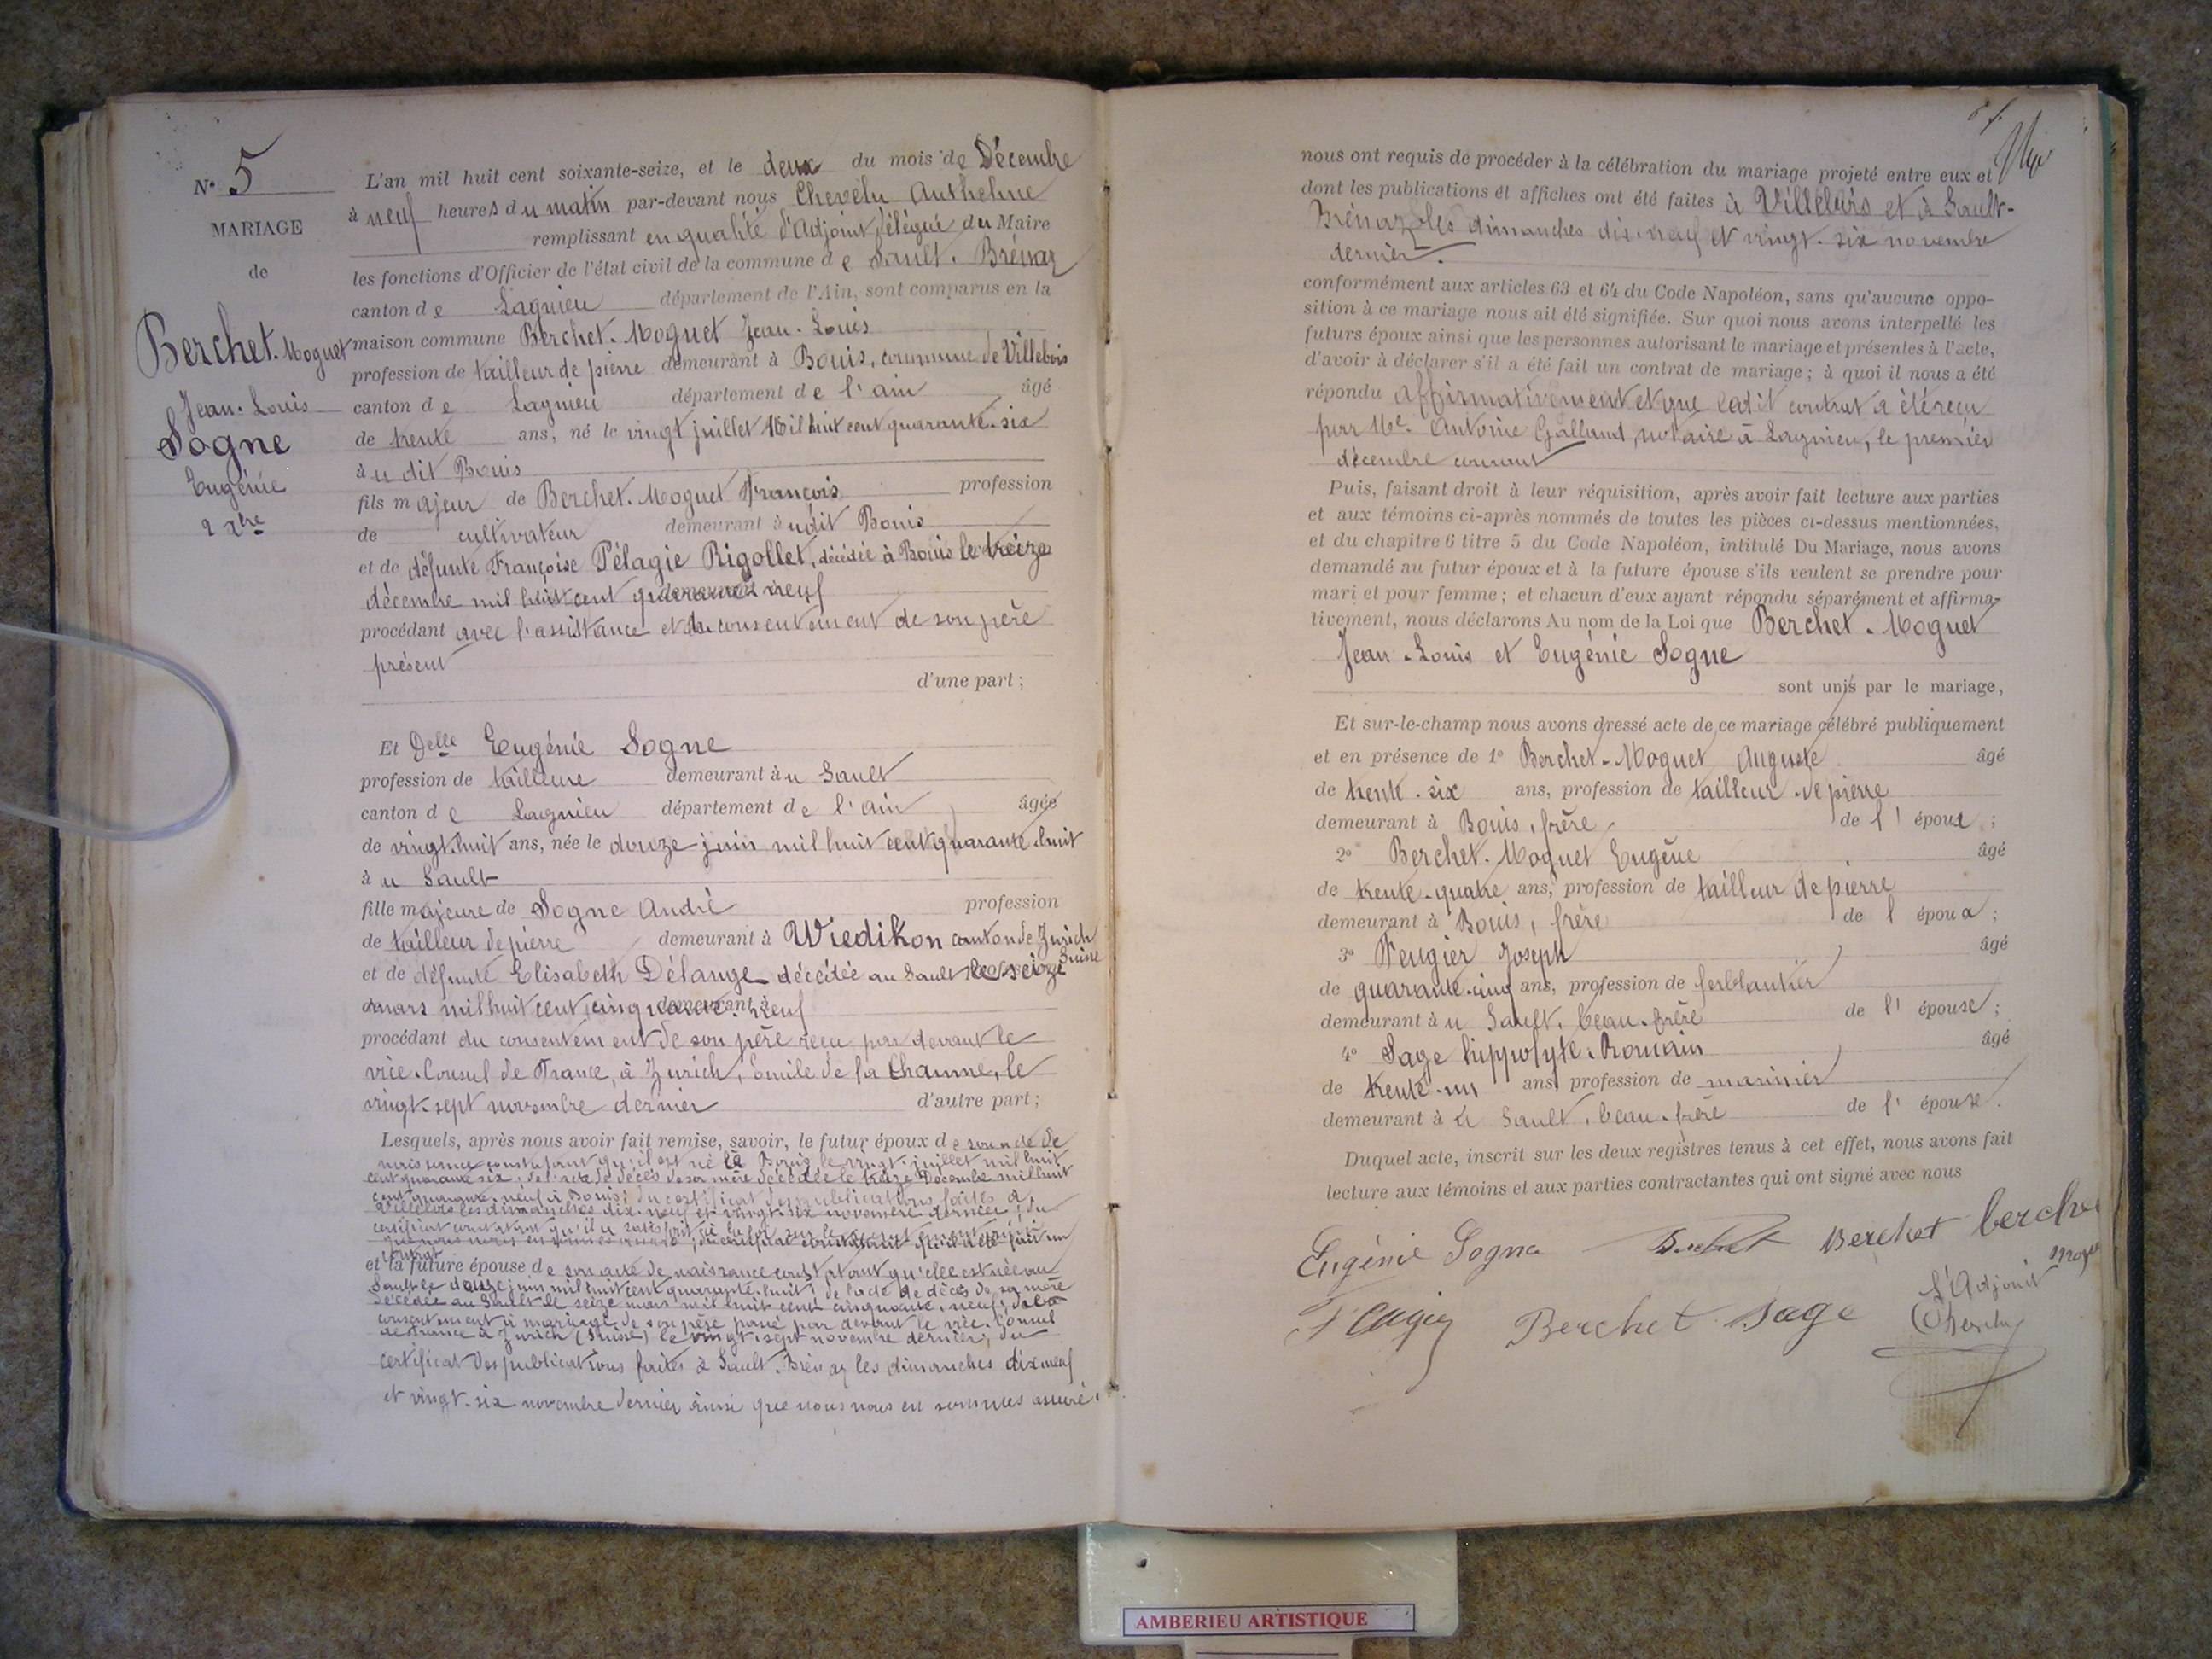 N° 5
MARIAGE
de
Berchet. Moguet
Jean. Louis
Sogne
Eugénie
L'an mil huit cent soixante-seize, et le deux du mois de Décembre
à neuf heures du matin par-devant nous Chevelu Anthelme
remplissant en qualité d'Adjoint délégué du Maire
les fonctions d'Officier de l'état civil de la commune de Sault. Brénaz
canton de Lagnieu département de l'Ain, sont comparus en la
maison commune Berchet. Moguet Jean. Louis
profession de tailleur de pierre demeurant à Bouis, commune de Villebois
canton de Lagnieu département de l'ain âgé
de trente ans, né le vingt juillet Mil huit cent quarante. six
à u dit Bouis
fils majeur de Berchet. Moguet François profession
de cultivateur demeurant à udit Bouis
et de défunte Françoise Pélagie Rigollet, décédée à Bouis le treize
décembre mil huit cent quarante neuf
procédant avec l'assistance et du consentement de son père
présent
d'une part;
Et Delle Eugénie Sogne
profession de tailleuse demeurant à u Sault
canton de Lagnieu département de l'ain âgée
de vingt.huit ans, née le douze juin mil huit cent quarante.huit
à u Sault
fille majeure de Sogne André profession
de tailleur de pierre demeurant à Wiedikon canton de Zurich
Suisse
et de défunte Elisabeth Délange décédée au Sault le seize
mars mil huit cent cinquante. neuf
procédant du consentement de son père reçu par devant le
vice. Consul de France, à Zurich, Emile de la Chaume, le
vingt-sept novembre dernier d'autre part;
Lesquels, après nous avoir fait remise, savoir, le futur époux de son acte de
naissance constatant qu'il est né à Bouis le vingt juillet mil huit
cent quarante six, de l'acte de décès de sa mère décédée le treize Décembre mil huit
cent quarante. neuf à Bouis; du certificat des publications faites à
Villebois les dimanches dix. neuf et vingt. six novembre dernier; du
certificat constatant qu'il a satisfait à la loi sur le recrutement
et la future épouse de son acte de naissance constatant qu'elle est née au
Sault le douze juin mil huit cent quarante. huit; de l'acte de décès de sa mère
décédée au Sault le seize mars mil huit cent cinquante. neuf; du
consentement à mariage de son père passé par devant le vice. Consul
de France à Zurich (Suisse) le vingt. sept novembre dernier; du
certificat des publications faites à Sault. Brénaz les dimanches dix neuf
et vingt. six novembre dernier ainsi que nous nous en sommes assuré.
nous ont requis de procéder à la célébration du mariage projeté entre eux et
dont les publications et affiches ont été faites à Villebois et à Sault-
Brénaz les dimanches dix. neuf et vingt. six novembre
dernier.
conformément aux articles 63 et 64 du Code Napoléon, sans qu'aucune oppo-
sition à ce mariage nous ait été signifiée. Sur quoi nous avons interpellé les
futurs époux ainsi que les personnes autorisant le mariage et présentes à l'acte,
d'avoir à déclarer s'il a été fait un contrat de mariage; à quoi il nous a été
répondu affirmativement et que ledit contrat a été reçu
par Me. Antoine Galland, notaire à Lagnieu, le premier
décembre courant
Puis, faisant droit à leur réquisition, après avoir fait lecture aux parties
et aux témoins ci-après nommés de toutes les pièces ci-dessus mentionnées,
et du chapitre 6 titre 5 du Code Napoléon, intitulé Du Mariage, nous avons
demandé au futur époux et à la future épouse s'ils veulent se prendre pour
mari et pour femme; et chacun d'eux ayant répondu séparément et affirma-
tivement, nous déclarons Au nom de la Loi que Berchet. Moguet
Jean. Louis et Eugénie Sogne
sont unis par le mariage,
Et sur-le-champ nous avons dressé acte de ce mariage célébré publiquement
et en présence de 1° Berchet. Moguet Auguste âgé
de trente. six ans, profession de tailleur de pierre
demeurant à Bouis, frère de l' époux;
2° Berchet. Moguet Eugène âgé
de trente. quatre ans, profession de tailleur de pierre
demeurant à Bouis, frère de l époux;
3° Feugier Joseph âgé
de quarante. cinq ans, profession de ferblantier
demeurant à u Sault, beau. frère de l' épouse;
4° Sage hippolyte. Romain âgé
de trente. un ans profession de marinier
demeurant à u Sault, beau. frère de l' épouse.
Duquel acte, inscrit sur les deux registres tenus à cet effet, nous avons fait
lecture aux témoins et aux parties contractantes qui ont signé avec nous
Eugénie Sogne Berchet Berchet berchet
L'Adjoint
Feugier Berchet Sage Chevelu
AMBERIEU ARTISTIQUE